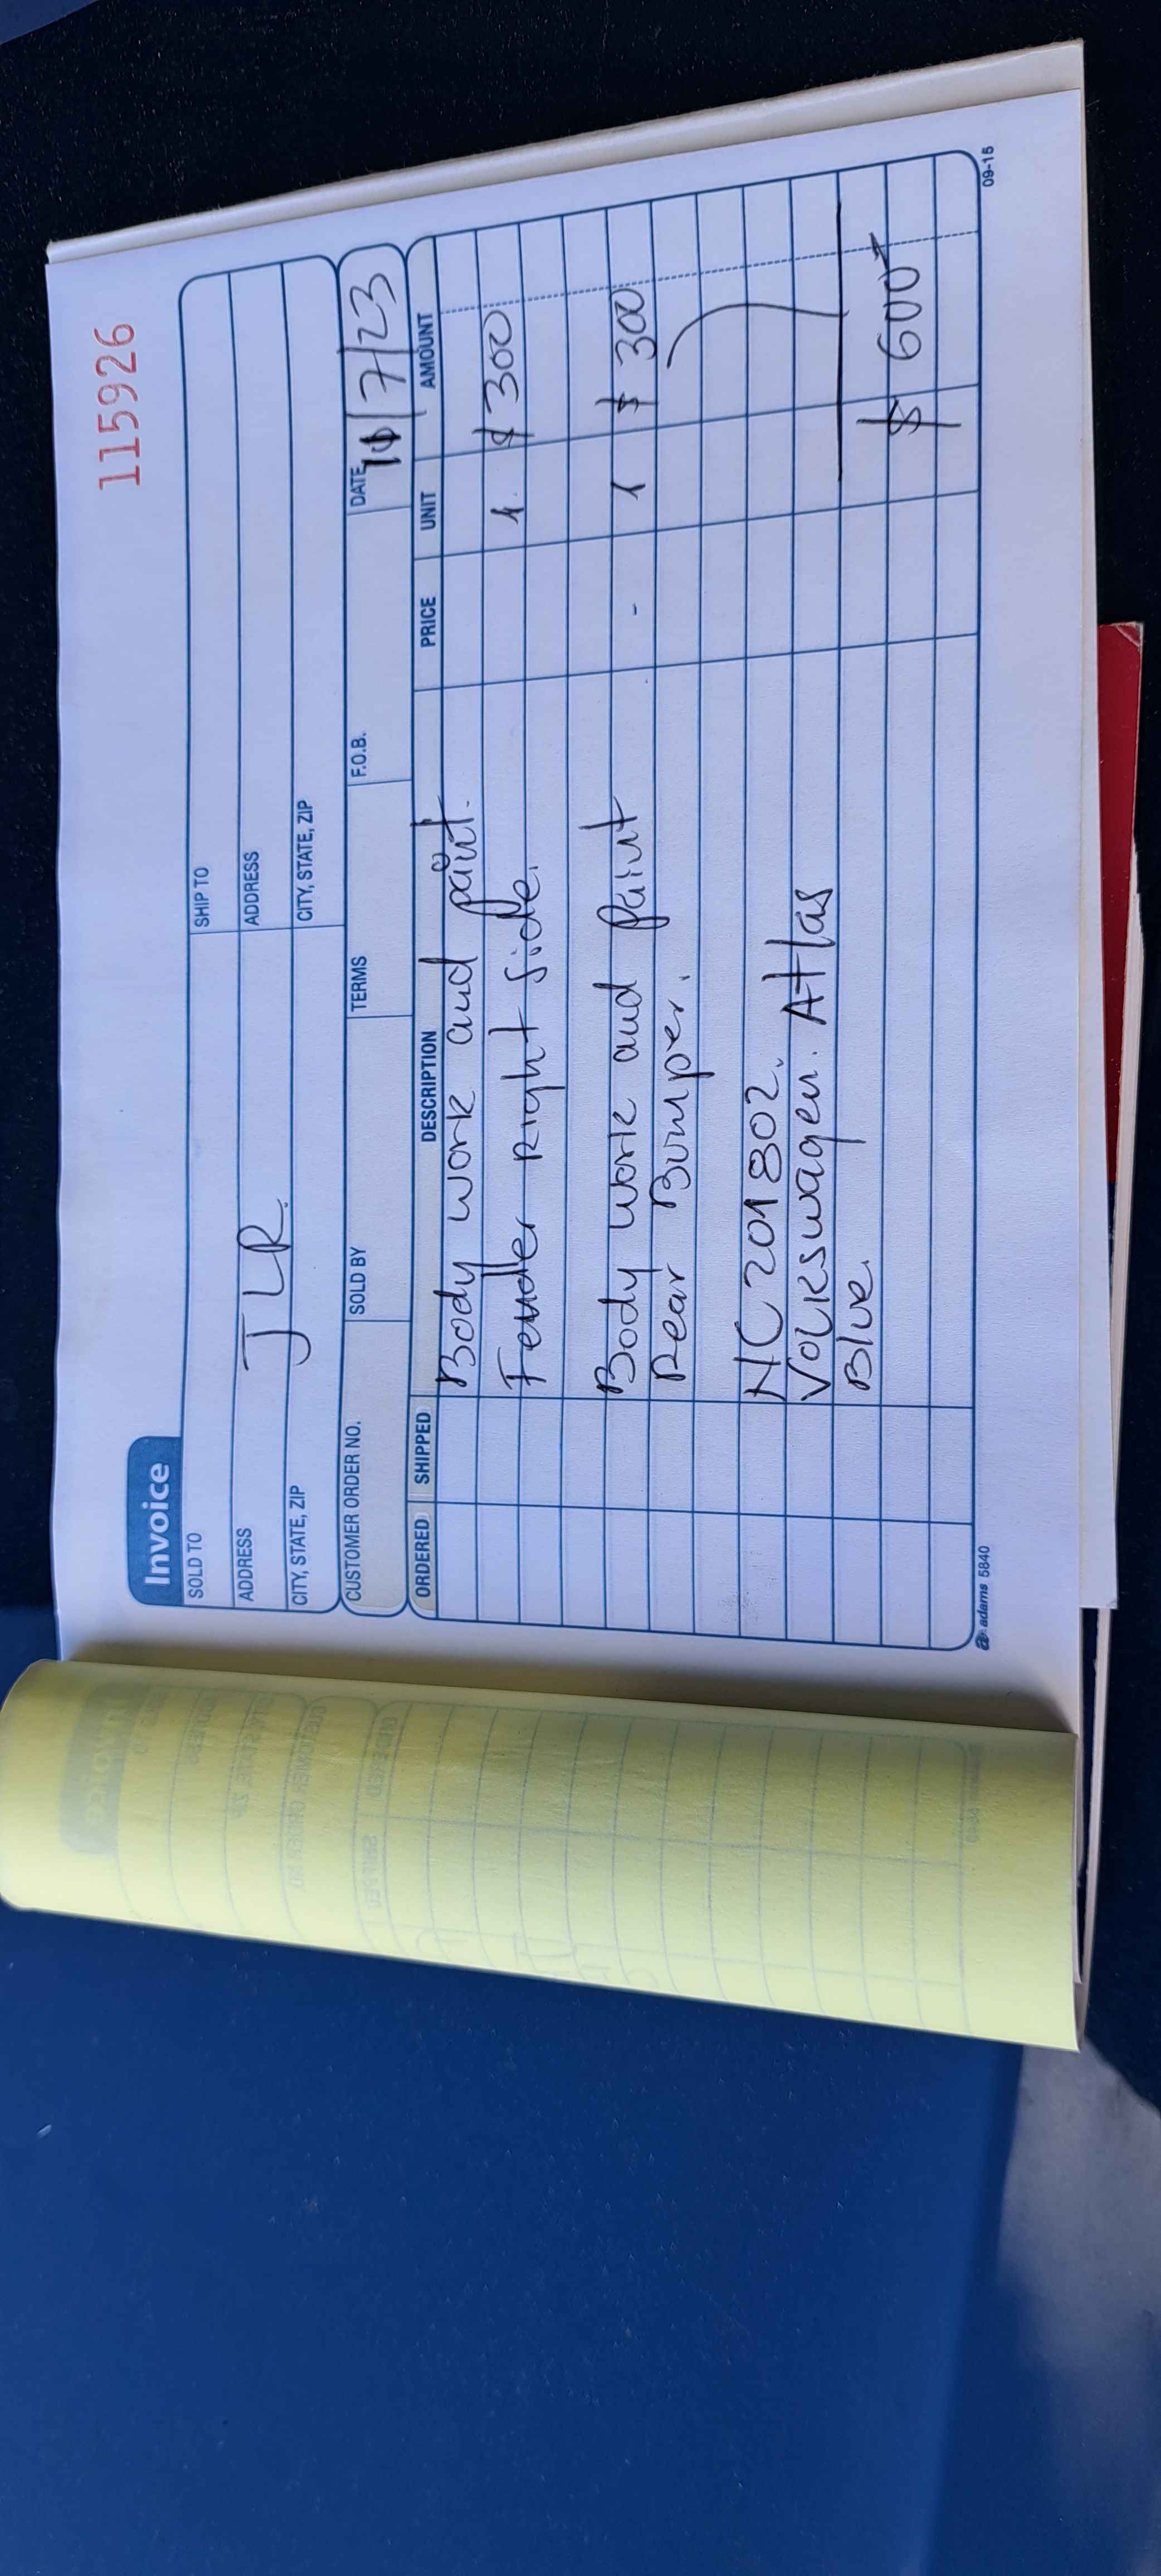 115926
Invoice
SOLD TO SHIP TO
ADDRESS JLR. ADDRESS
CITY, STATE, ZIP CITY, STATE, ZIP
CUSTOMER ORDER NO. SOLD BY TERMS F.O.B. DATE /7/23
ORDERED SHIPPED DESCRIPTION PRICE UNIT AMOUNT
Body work and paint.
Fender Right side. 1. $300
Body work and paint - 1 $300
Rear Bumper.
NC 201802.
Volkswagen. Atlas
Blue. $600
adams 5840 09-15